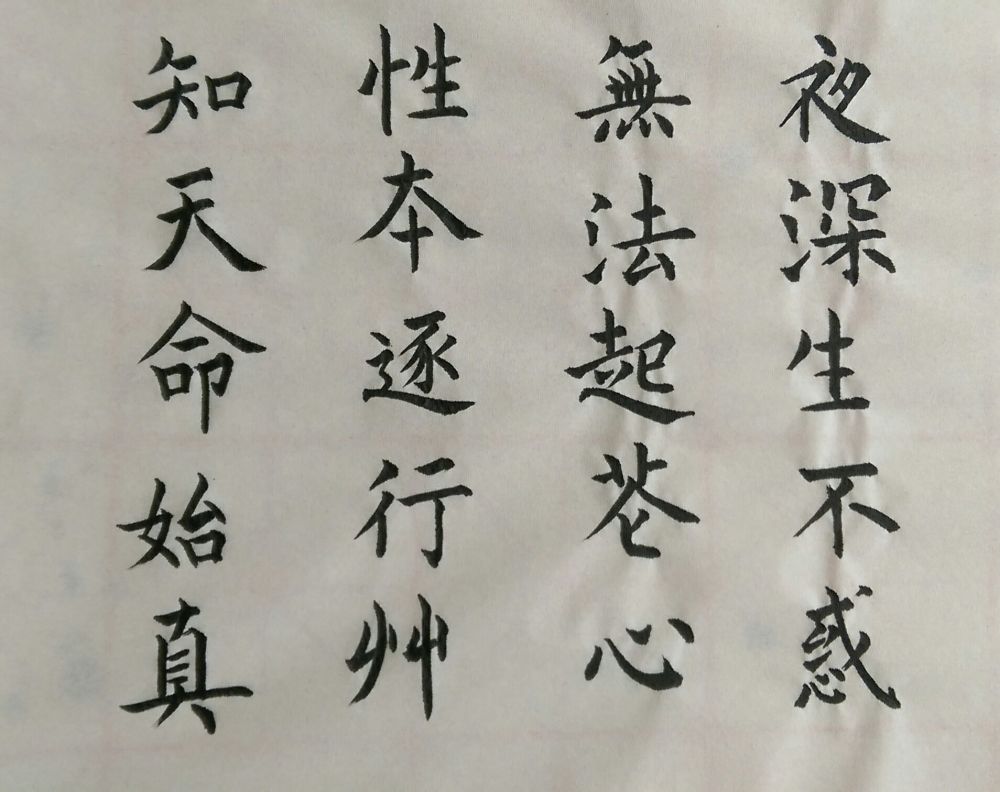 夜深生不惑
無法起苍心
性本逐行艸
知天命始真